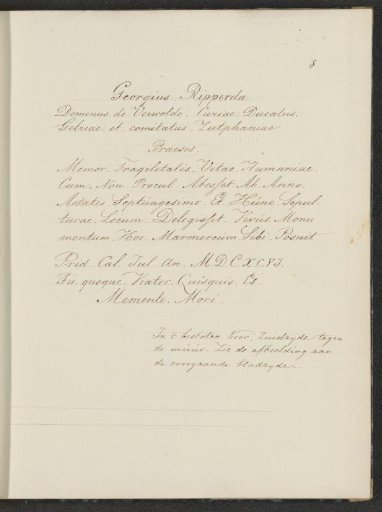 5
Georgius Ripperda
Dominus de Verwolde. Curiae. Ducatus.
Gelriae et comitatus Zutphaniae
Praeses
Memor. Fragilitatis. Vitae. Humaniae.
Cum. Non Procul. Abesset. Ab. Anno.
Aetatis. Septuagesimo. Et Hunc Sepul
turae. Locum. Delegisset. Vivus. Monu
mentum. Hoc. Marmoreum Sibi Posuit
Prid. Cal. Jul an. M.D.C.X.C.VI.
Tu. quoque. Viator. Quisquis Es
Memento. Mori.
In 't besloten koor Zuidzyde tegen
de muur. Zie de afbeelding aan
de voorgaande bladzyde.